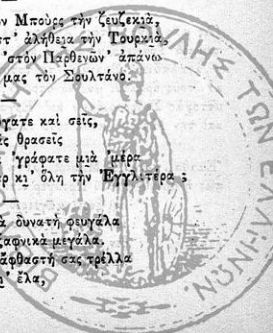 ν Μποὺρς τὴν ζευζεκιὰ,
πτ' ἀλήθεια τὴν Τουρκιὰ,
'στὸν Παρθενῶν' ἀπάνω
μας τὸν Σουλτάνο.
γατε καὶ σεῖς,
ς θρασεῖς
γράφατε μιὰ 'μέρα
κι' ὅλη τὴν Ἐγγλιτέρα ;
δυνατὴ φευγάλα
ξαφνικὰ μεγάλα.
ἄφθαστή σας τρέλλα
ἔλα,
ΤΗΣ ΕΛΛΗΝΩΝ